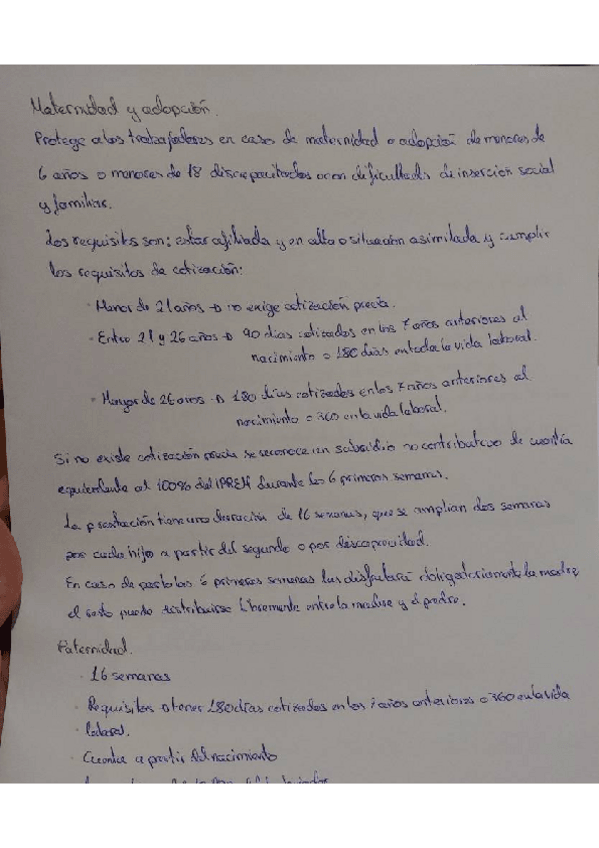 Maternidad y adopción.
Protege a los trabajadores en caso de maternidad o adopción de menores de
6 años o menores de 18 discapacitados o con dificultades de inserción social
y familiar.
Los requisitos son: estar afiliada y en alta o situación asimilada y cumplir
los requisitos de cotización:
· Menor de 21 años → no exige cotización previa.
· Entre 21 y 26 años → 90 días cotizados en los 7 años anteriores al
nacimiento o 180 días en toda la vida laboral.
· Mayor de 26 años → 180 días cotizados en los 7 años anteriores al
nacimiento o 360 en la vida laboral.
Si no existe cotización previa se reconoce un subsidio no contributivo de cuantía
equivalente al 100% del IPREM durante las 6 primeras semanas.
La prestación tiene una duración de 16 semanas, que se amplian dos semanas
por cada hijo a partir del segundo o por discapacidad.
En caso de parto las 6 primeras semanas las disfrutará obligatoriamente la madre,
el resto puede distribuirse libremente entre la madre y el padre.
Paternidad.
· 16 semanas
· Requisitos → tener 180 días cotizados en los 7 años anteriores o 360 en la vida
· laboral.
· Cuenta a partir del nacimiento